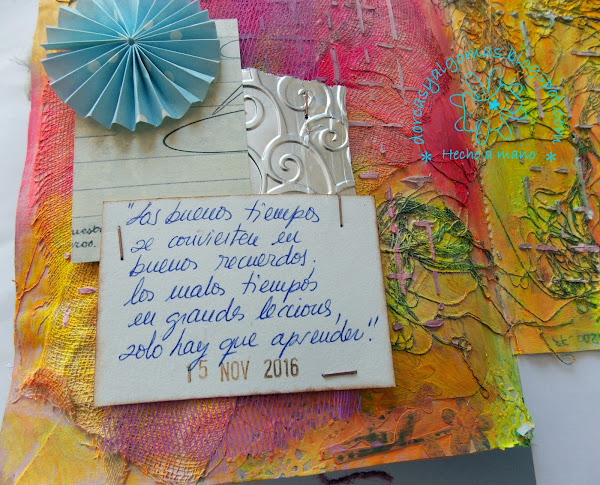 dorcasyalgomas.blogspot.com
* Hecho a mano *
"Los buenos tiempos
se convierten en
buenos recuerdos.
los malos tiempos
en grandes lecciones,
solo hay que aprender".
15 NOV 2016